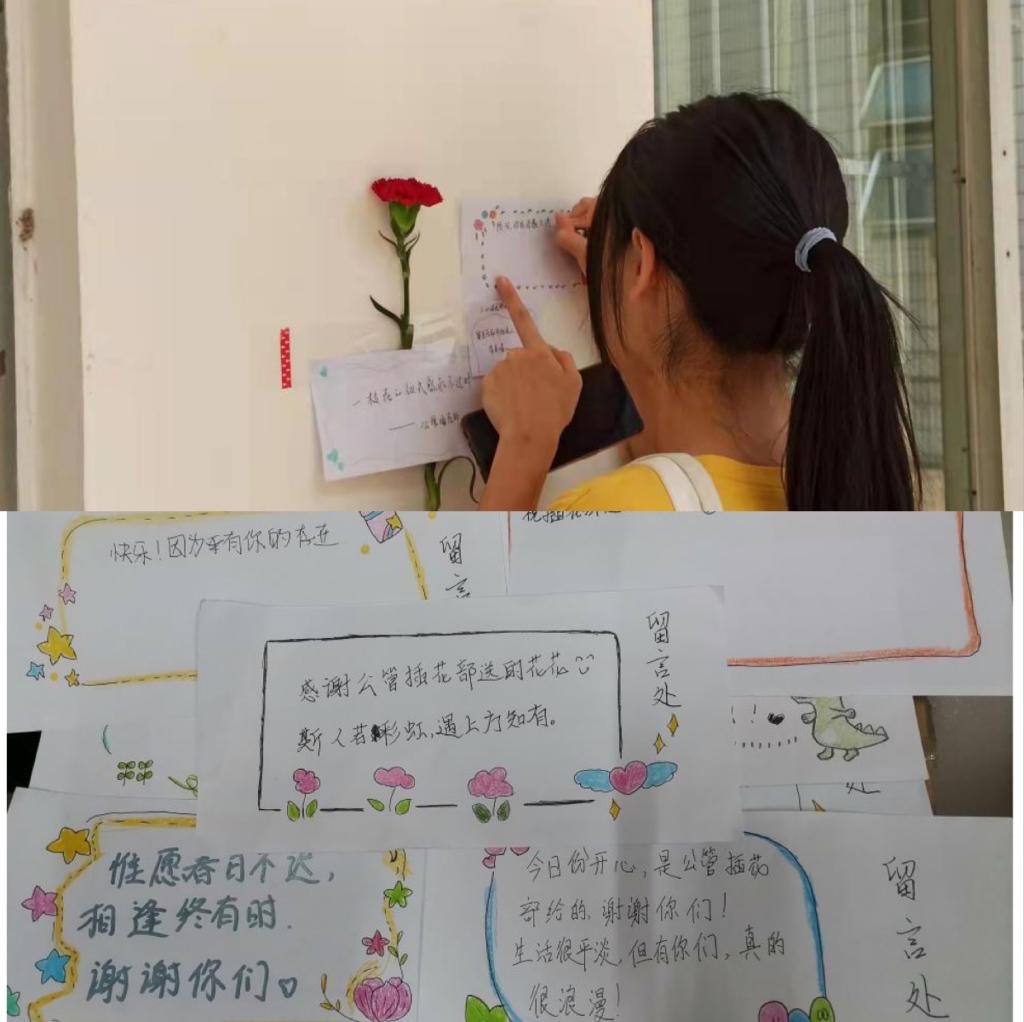 一枝花的仪式感永不过时
快乐！因为幸有你的存进
留言
感谢公管插花部送的花花
斯人若彩虹，遇上方知有。
留言处
惟愿春日不迟，
相逢终有时.
谢谢你们
今日份开心，是公管插花
部给的，谢谢你们！
生活很平淡，但有你们，真的
很浪漫！
留言处